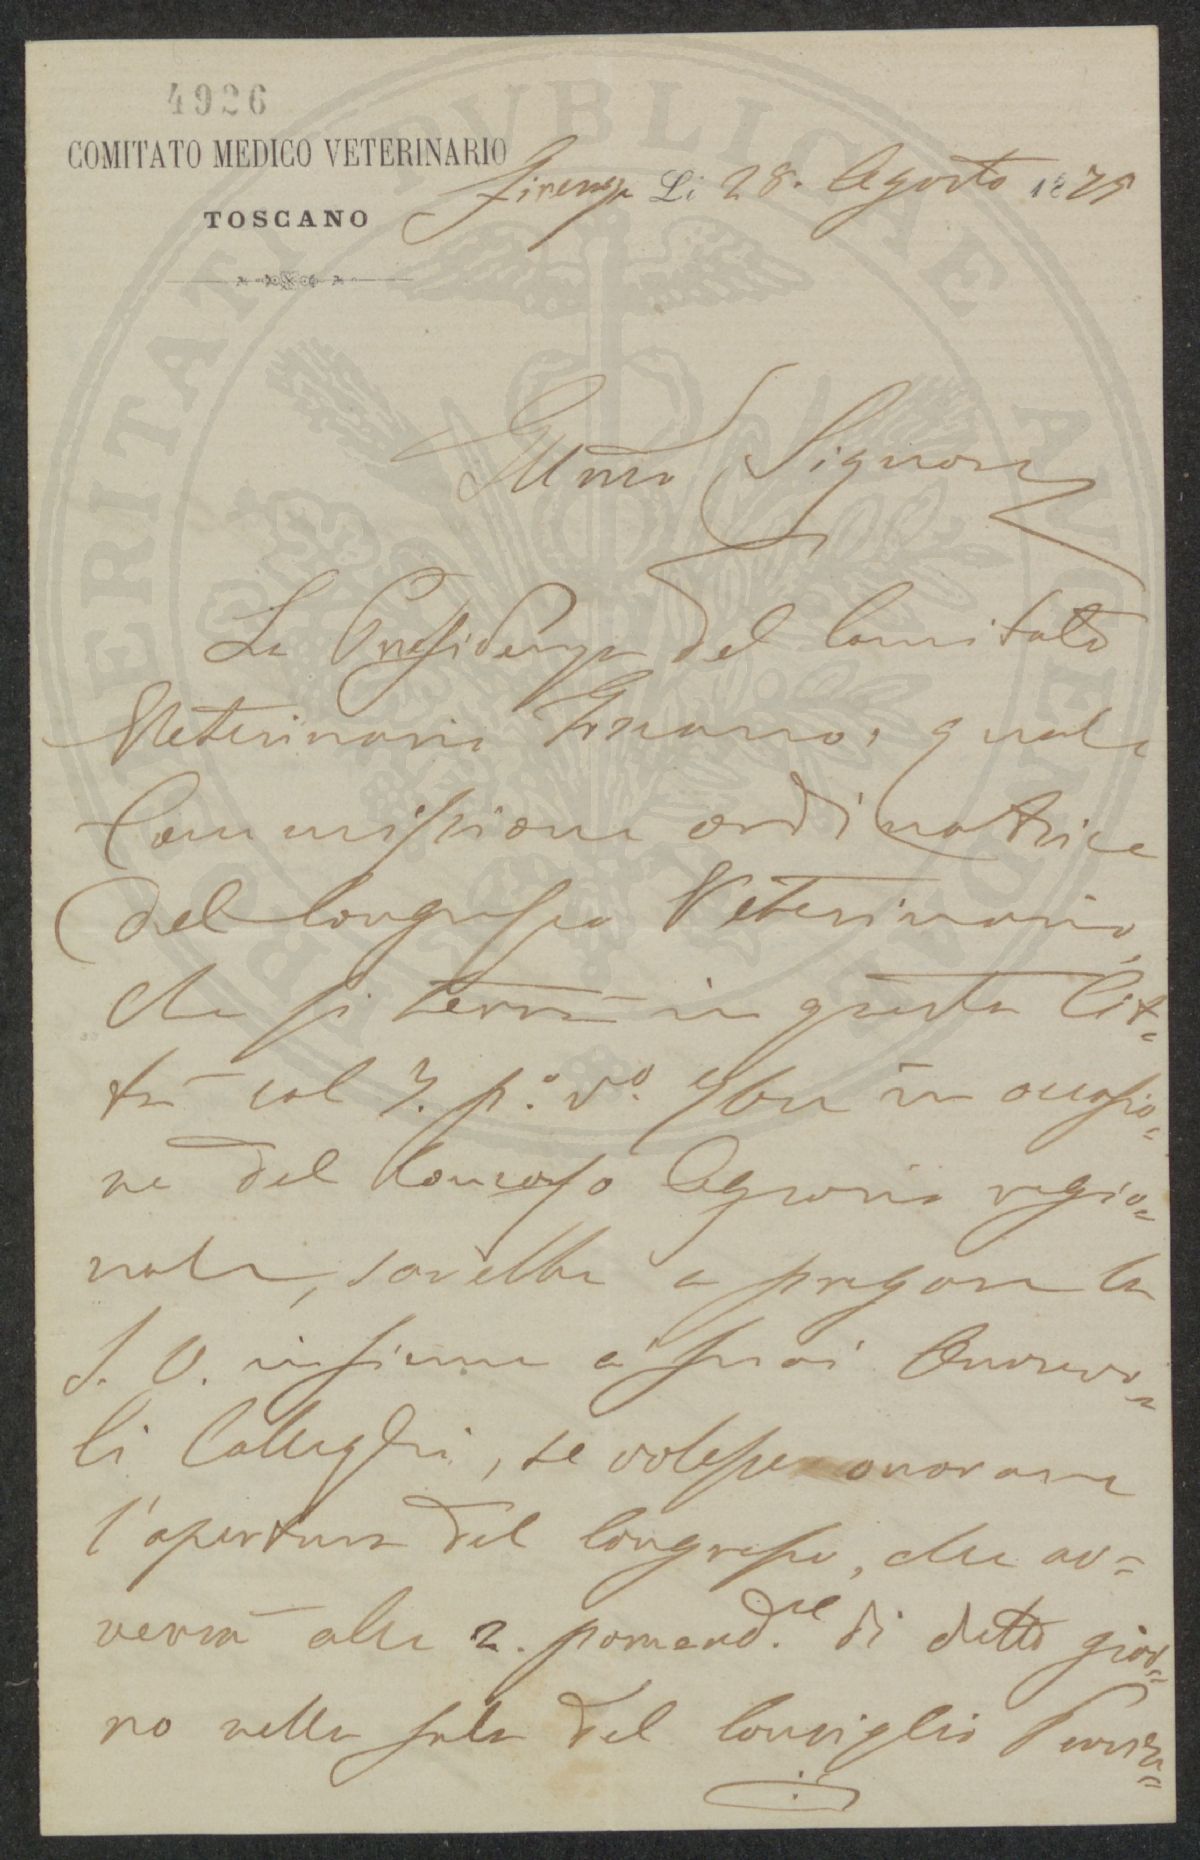 4926
COMITATO MEDICO VETERINARIO
TOSCANO
Firenze Li 28. Agosto 1875
Illmo Signore
La Presidenza del Comitato
Veterinario Toscano, quale
Commissione ordinatrice
del Congresso Veterinario,
che si terrà in questa Cit=
tà col 7. p.º v.º 7bre in occasio=
ne del Concorso Agrario regio=
nale, sarebbe a pregare la
S. V. insieme a' suoi Onorevo=
li Colleghi, se volesse onorare
l'apertura del Congresso, che av=
verrà alle 2. pomerid. di detto gior=
no nella sala del Consiglio Provin=
PROSPERITATI PVBLICAE AVGENDAE